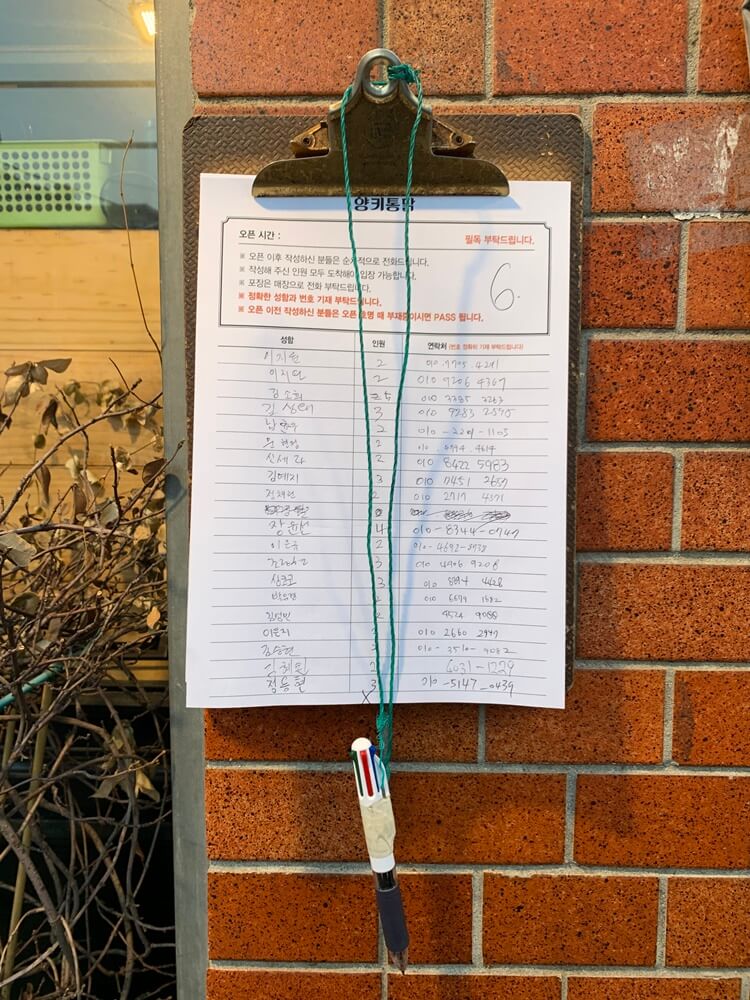 양키통닭
오픈 시간 : 필독 부탁드립니다.
※ 오픈 이후 작성하신 분들은 순차적으로 전화드립니다.
※ 작성해 주신 인원 모두 도착해야 입장 가능합니다.
※ 포장은 매장으로 전화 부탁드립니다.
※ 정확한 성함과 번호 기재 부탁드립니다.
※ 오픈 이전 작성하신 분들은 오픈 호명 때 부재중이시면 PASS 됩니다.
6.
성함 인원 연락처 (번호 정확히 기재 부탁드립니다)
이지은 2
이지연 2 010 9206 4367
김소희 010
김상태 3 010 7283 2570
2 010 - 2201 - 1105
2
신세라 2 010 8422 5983
김예지 3 010 7451
정채련 2 010 2717 4371
장윤선 4 010 - 8344 - 0747
이은규 2 010 - 4692 -
3 010 4906 9208
3 010 8814 4428
010 6679 1682
2 4524 9088
이은지 010 2660 2947
김승현 010 - 3510 - 9082
6031 - 1229
정승현 3 010 - 5147 - 0439